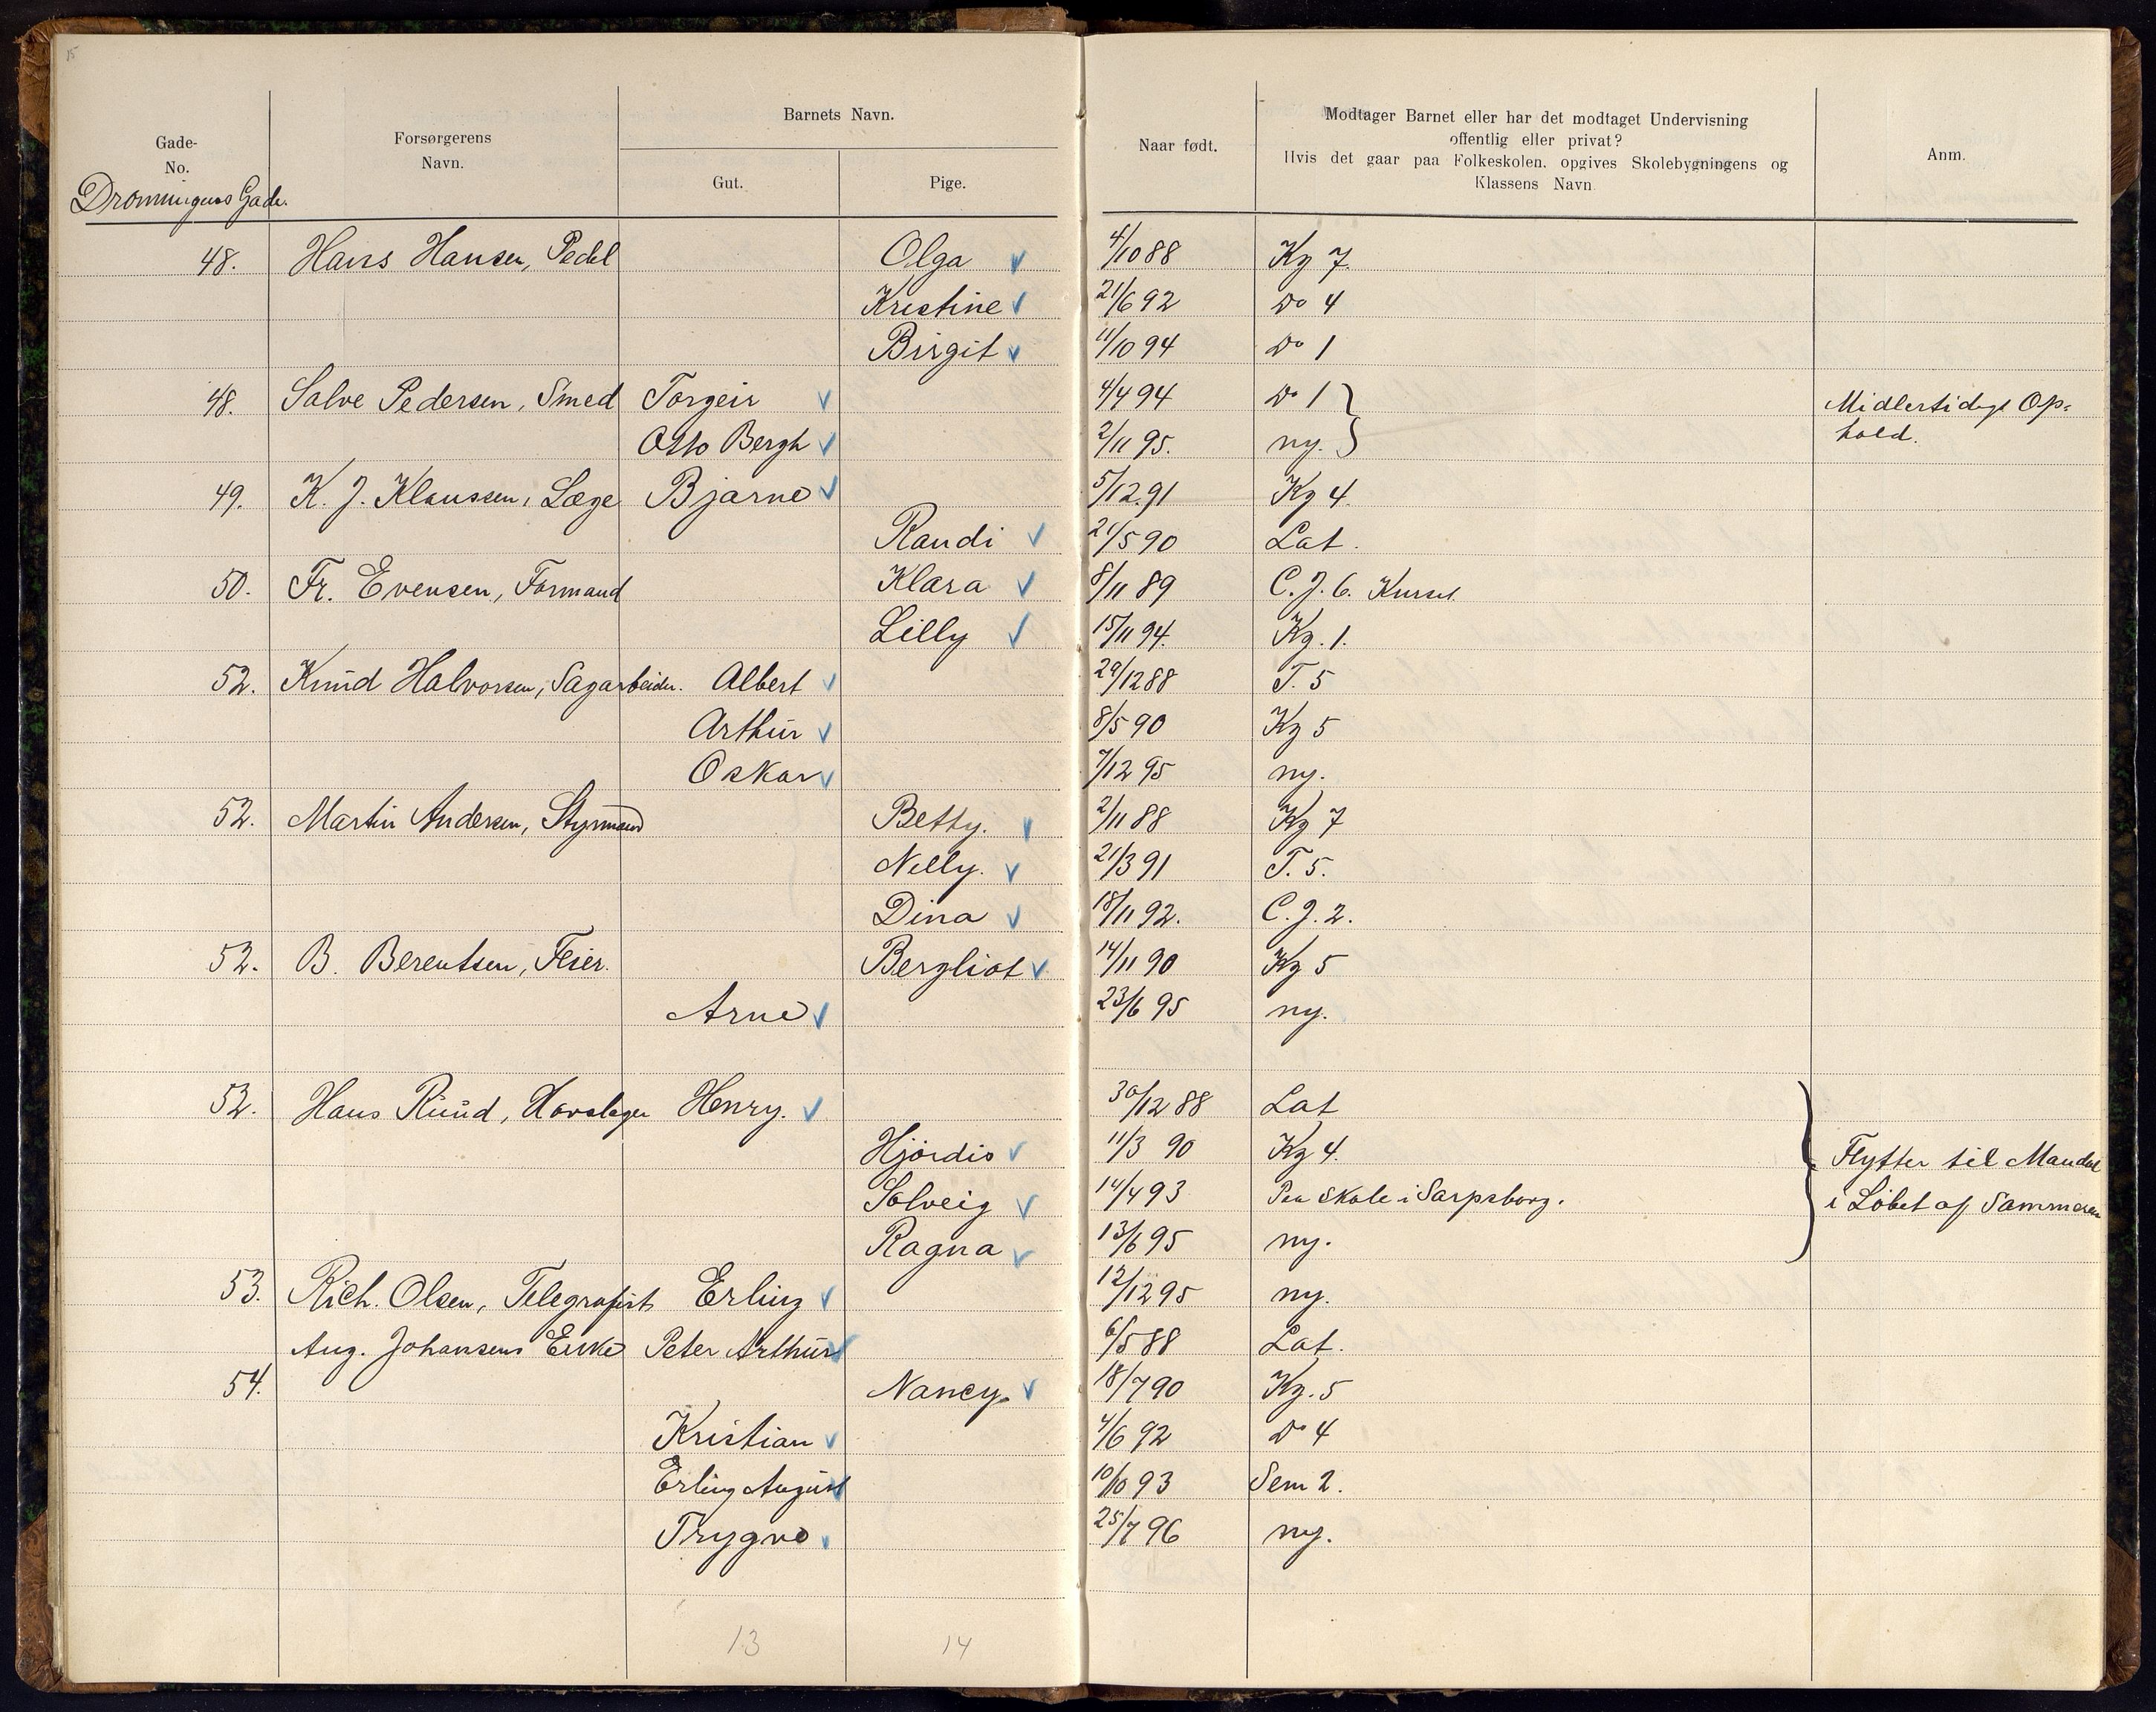 15
Gade-
No.
Forsørgerens
Navn.
Barnets Navn.
Gut.
Pige.
Naar født.
Modtager Barnet eller har det modtaget Undervisning
offentlig eller privat?
Hvis det gaar paa Folkeskolen, opgives Skolebygningens og
Klassens Navn.
Anm.
Dronningens Gade.
48. Hans Hansen, Pedel Olga 4/10 88 Kg 7.
Kristine 21/6 92 Do 4
Birgit 11/10 94 Do 1
48. Salve Pedersen, Smed Torgeir 4/4 94 Do 1 Midlertidigt Op-
Otto Bergh 2/11 95. ny. hold.
49. K. J. Klaussen, Læge Bjarne 5/12.91 Kg 4.
Randi 21/5 90 Lat.
50. Fr. Evensen, Formand Klara 8/11 89 C. J. 6. Kursel
Lilly 15/11 94. Kg. 1.
52. Knud Halvorsen, Sagarbeider. Albert 29/12 88 T. 5
Arthur 8/5 90 Kg 5
Oskar 7/12 95 ny.
52. Martin Andersen, Styrmand Betty. 2/11 88 Kg 7
Nelly. 21/3 91 T. 5.
Dina 18/11 92. C. J. 2.
52. B. Berentsen, Feier. Bergliot 14/11 90 Kg 5
Arne 23/6 95 ny.
52. Hans Ruud, Havslager Henry. 30/12 88 Lat
Hjördis 11/3 90 Kg 4. Flytter til Mandal
Solveig 14/4 93 Paa Skole i Sarpsborg. i Löbet af Sommeren
Ragna 13/6 95 ny.
53. Rich. Olsen, Telegrafist Erling 12/12 95 ny.
Aug. Johansens Enke Peter Arthur 6/5 88 Lat.
54. Nancy 18/7 90 Kg. 5
Kristian 4/6 92 Do 4
Erling August 10/10 93 Sem 2.
Trygve 25/7 96 ny.
13 14